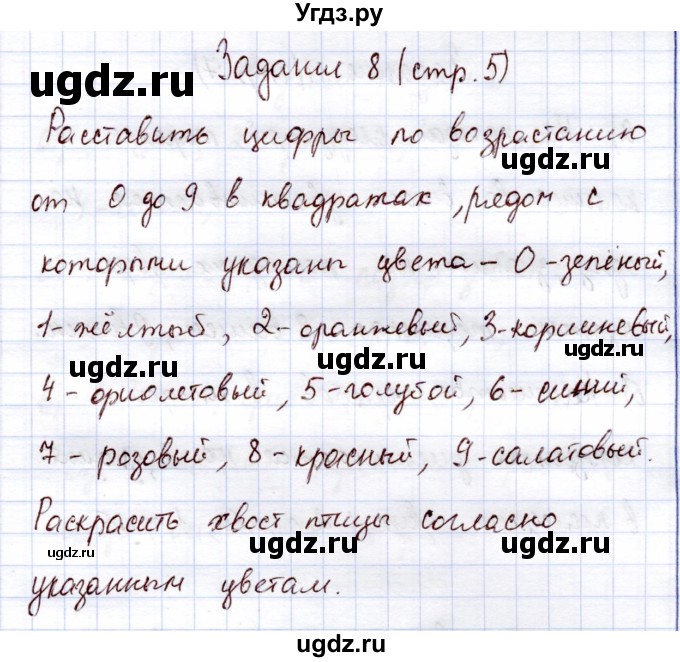 Угдз.ру
Задание 8 (стр. 5)
ugdz.ru
Расставить цифры по возрастанию
ugdz.ru
от 0 до 9 в квадратах, рядом с
которыми указаны цвета – 0 - зелёный,
1 - жёлтый, 2 - оранжевый, 3 - коричневый,
ugdz.ru
ugdz.ru
4 - фиолетовый, 5 - голубой, 6 - синий,
7 - розовый, 8 - красный, 9 - салатовый.
Раскрасить хвост птицы согласно
ugdz.ru ugdz.ru ugdz.ru
указанным цветам.
ugdz.ru